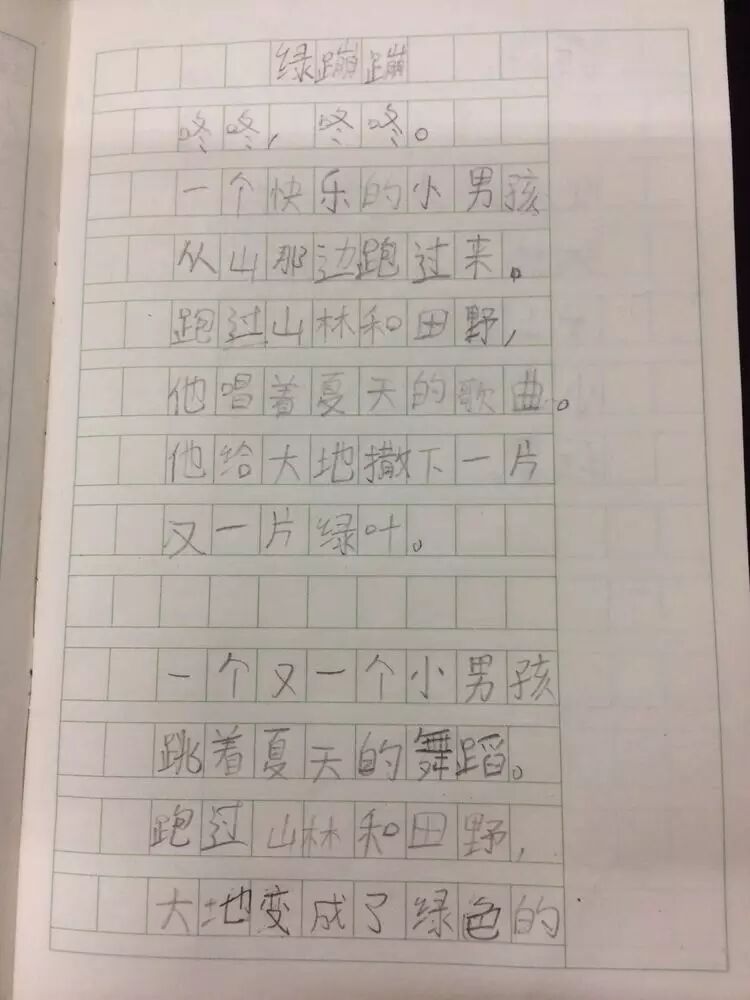 绿蹦蹦
咚咚,咚咚。
一个快乐的小男孩
从山那边跑过来。
跑过山林和田野,
他唱着夏天的歌曲。
他给大地撒下一片
又一片绿叶。
一个又一个小男孩
跳着夏天的舞蹈。
跑过山林和田野,
大地变成了绿色的